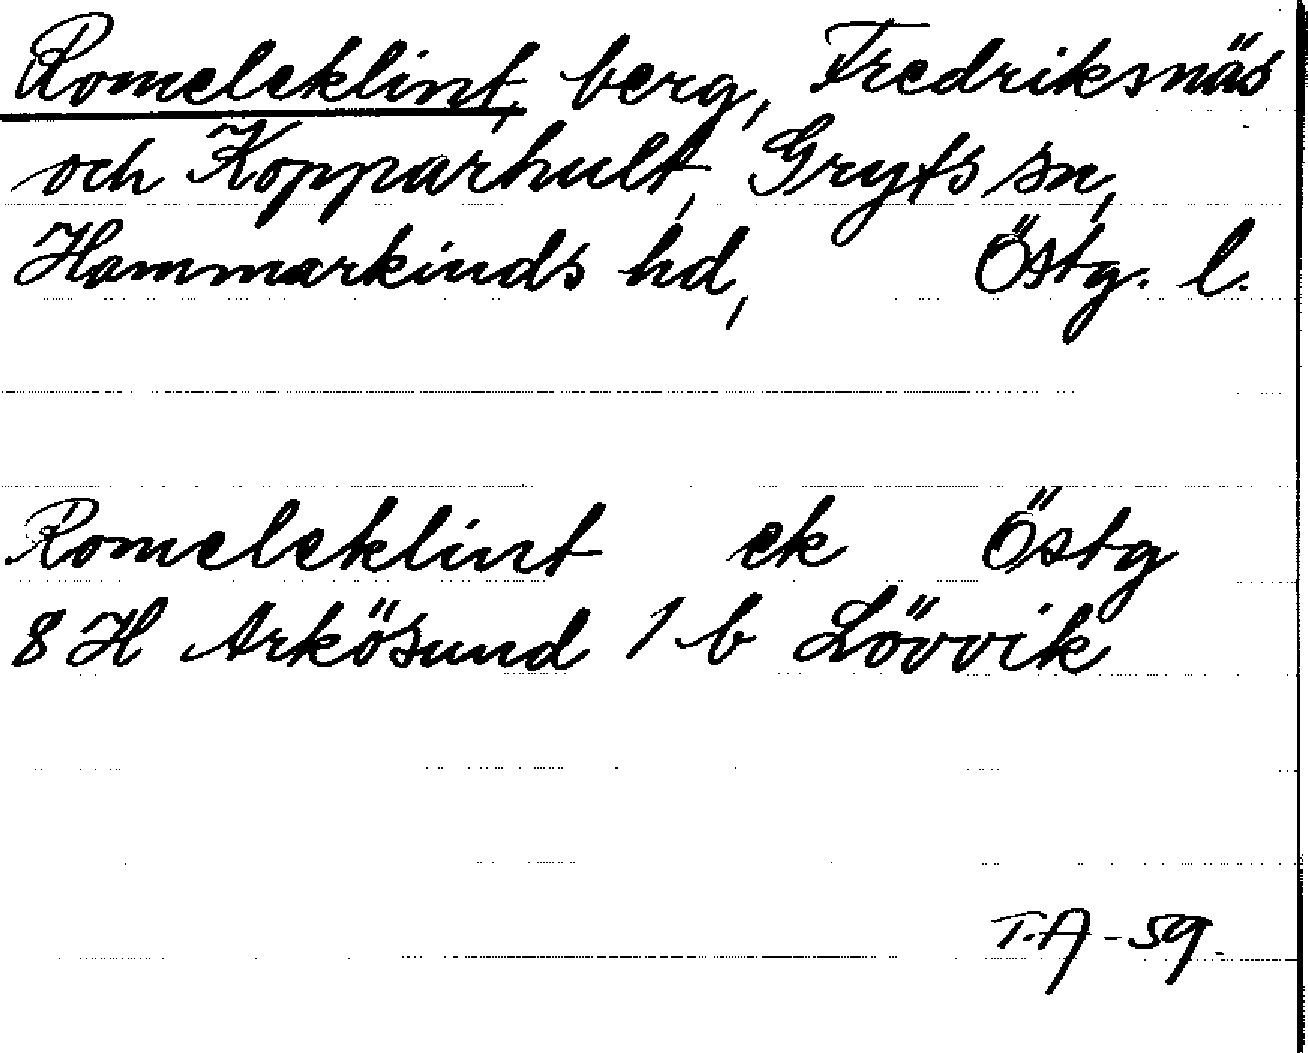 Romeleklint, berg, Fredriksnäs
och Kopparhult, Gryts sn,
Hammarkinds hd, Östg. l.
Romeleklint ek Östg
8 H Arkösund 1 b Lövvik
T.A - 59.